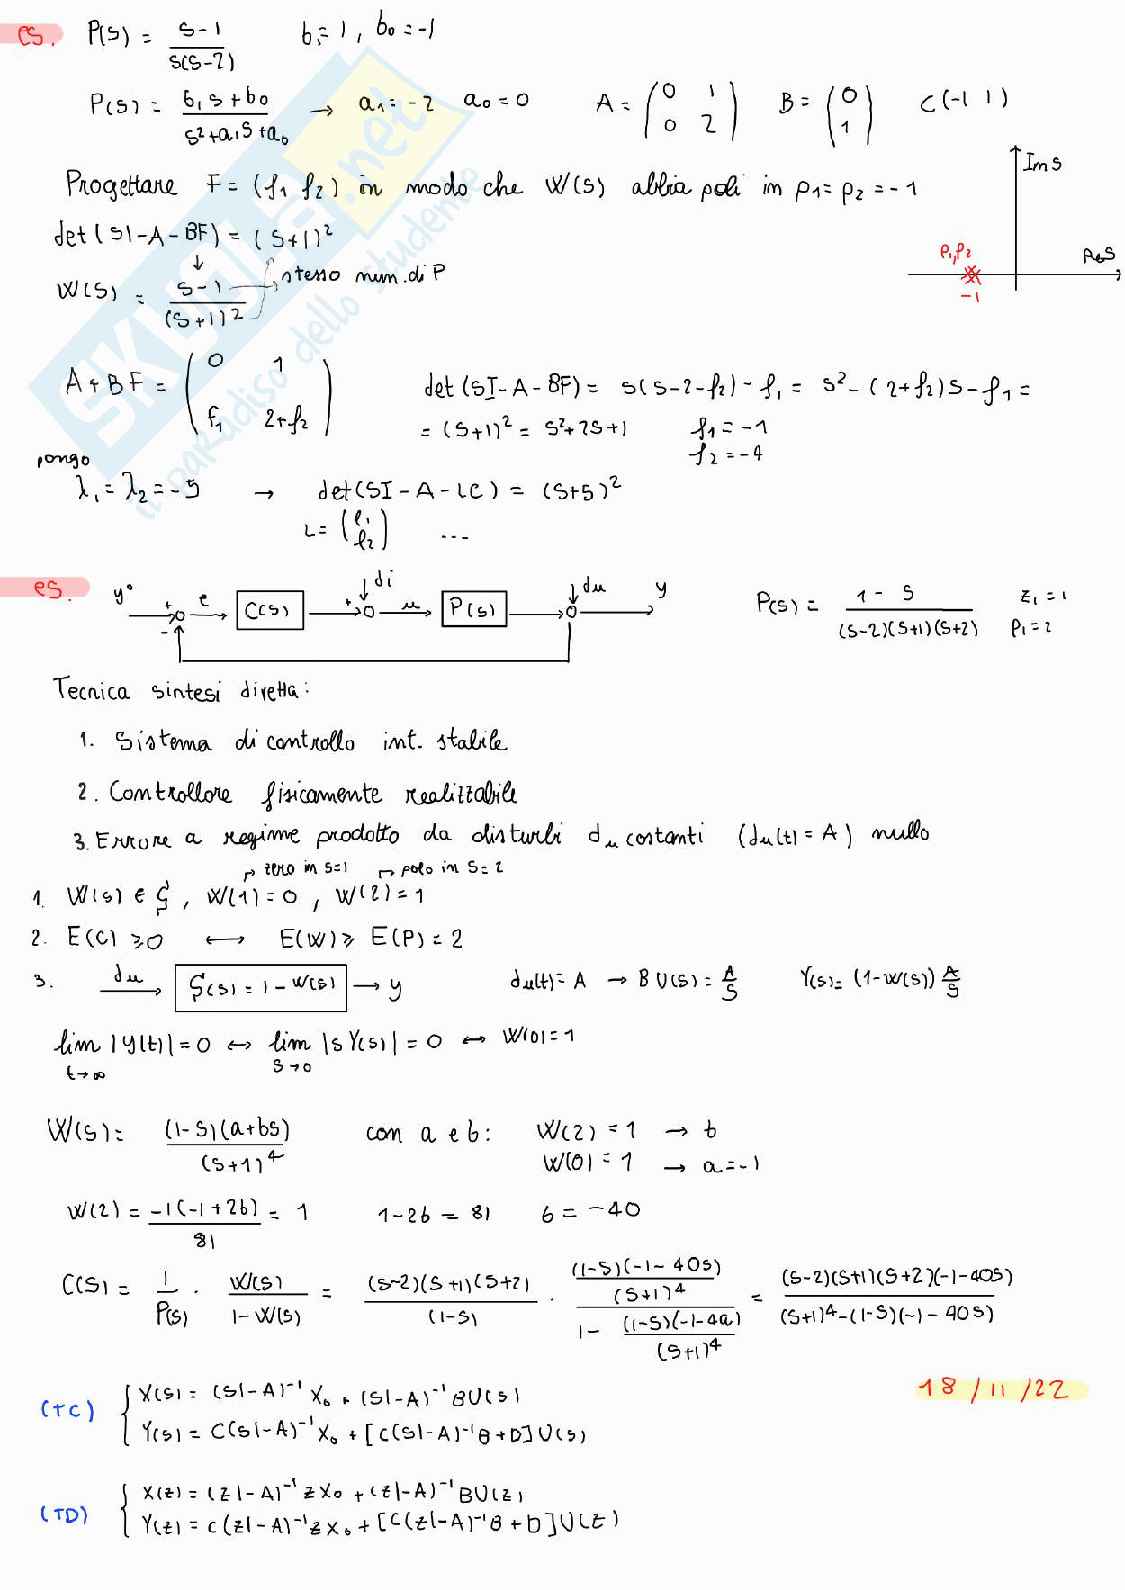 es. P(s) = s-1 / s(s-2) b₁=1, b₀=-1
P(s) = b₁s+b₀ / s²+a₁s+a₀ → a₁=-2 a₀=0 A = (0 1 / 0 2) B = (0 / 1) C(-1 1)
Im s
Progettare F = (f₁ f₂) in modo che W(s) abbia poli in p₁=p₂=-1
det(sI-A-BF) = (s+1)²
p₁,p₂ Re s
-1
W(s) = s-1 / (s+1)² stesso num. di P
A+BF = (0 1 / f₁ 2+f₂) det(sI-A-BF) = s(s-2-f₂)-f₁ = s²-(2+f₂)s-f₁ =
= (s+1)² = s²+2s+1 f₁=-1
f₂=-4
pongo
λ₁=λ₂=-5 → det(sI-A-LC) = (s+5)²
L = (l₁ / l₂) ...
es. y° + - e C(s) + di u P(s) du y P(s) = 1-s / (s-2)(s+1)(s+2) z₁=1
p₁=2
Tecnica sintesi diretta:
1. Sistema di controllo int. stabile
2. Controllore fisicamente realizzabile
3. Errore a regime prodotto da disturbi du costanti (du(t)=A) nullo
zero in s=1 polo in s=2
1. W(s) ∈ Ş, W(1)=0, W(2)=1
2. E(C) ≥ 0 ↔ E(W) ≥ E(P)=2
3. du → S(s)=1-W(s) → y du(t)=A → BU(s)=A/s Y(s)=(1-W(s))A/s
lim t→∞ |y(t)|=0 ↔ lim s→0 |sY(s)|=0 ↔ W(0)=1
W(s) = (1-s)(a+bs) / (s+1)⁴ con a e b: W(2)=1 → b
W(0)=1 → a=-1
W(2) = -1(-1+2b) / 81 = 1 1-2b=81 b=-40
C(s) = 1/P(s) · W(s)/1-W(s) = (s-2)(s+1)(s+2) / (1-s) · (1-s)(-1-40s) / (s+1)⁴ / 1 - (1-s)(-1-4a) / (s+1)⁴ = (s-2)(s+1)(s+2)(-1-40s) / (s+1)⁴-(1-s)(-1-40s)
18/11/22
(TC) { X(s) = (sI-A)⁻¹x₀ + (sI-A)⁻¹BU(s)
Y(s) = C(sI-A)⁻¹x₀ + [C(sI-A)⁻¹B+D]U(s)
(TD) { X(z) = (zI-A)⁻¹zx₀ + (zI-A)⁻¹BU(z)
Y(z) = C(zI-A)⁻¹zx₀ + [C(zI-A)⁻¹B+D]U(z)
SKUOLA.net
il paradiso dello studente